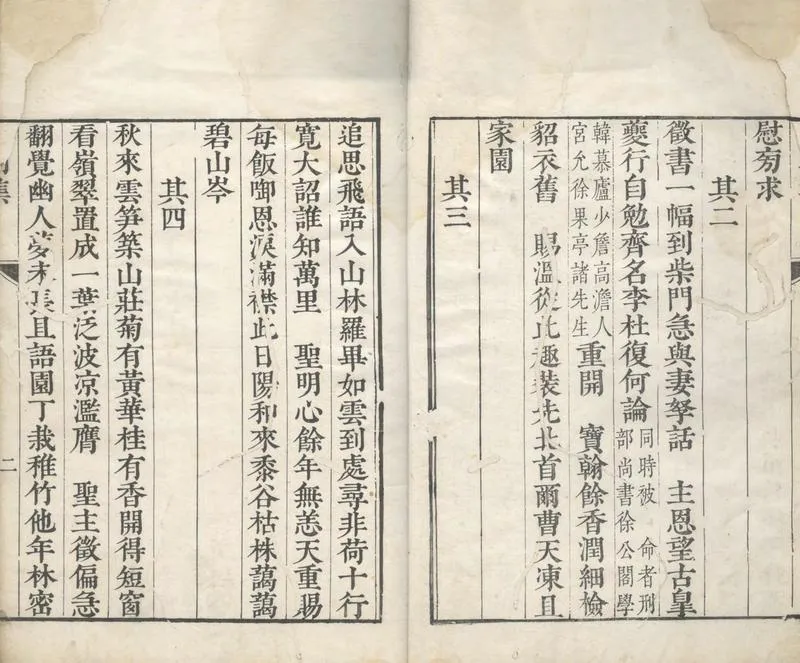 慰旁求
其二
徵書一幅到柴門急與妻孥話 主恩望古皐
夔行自勉齊名李杜復何論同時被 命者刑
部尚書徐公閣學
韓慕廬少詹高澹人
宮允徐果亭諸先生重開 寶翰餘香潤細檢
貂衣舊 賜溫從此趣裝先北首爾曹天凍且
家園
其三
追思飛語入山林羅畢如雲到處尋非荷十行
寬大詔誰知萬里 聖明心餘年無恙天重賜
每飯啣恩淚滿襟此日陽和來黍谷枯株藹藹
碧山岑
其四
秋來雲笋築山莊菊有黃華桂有香開得短窗
看嶺翠置成一葉泛波凉濫膺 聖主徵偏急
翻覺幽人夢未長且語園丁栽稚竹他年林密
集
二